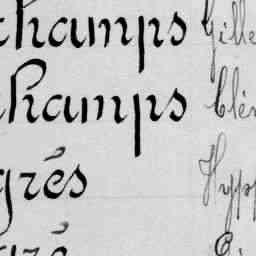 champs Gille
champs blé
grés Hypp
gré